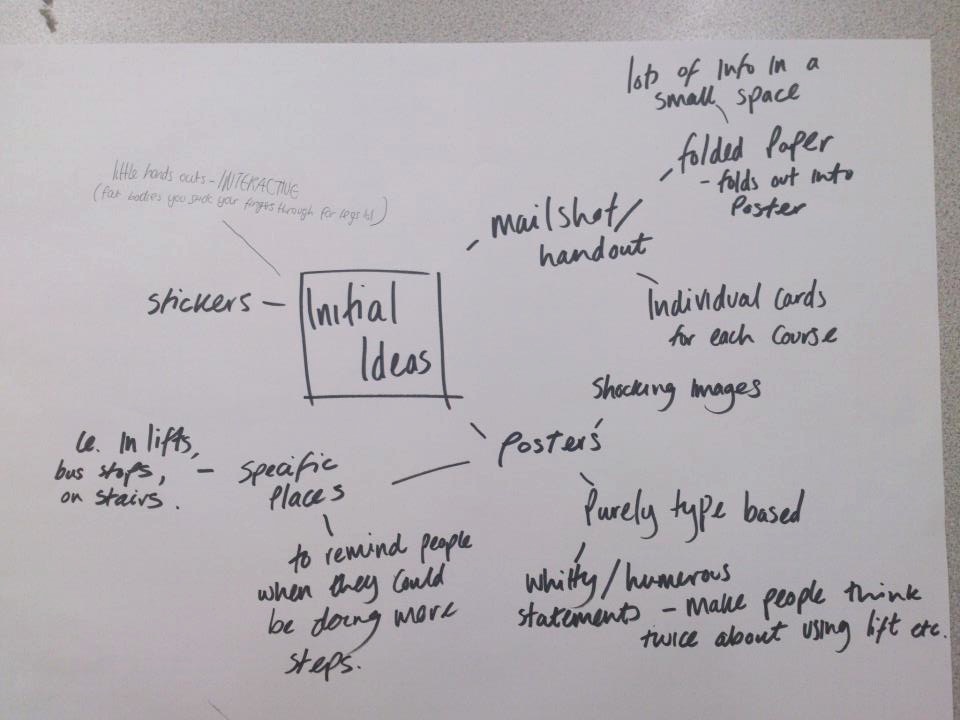 Initial
Ideas
little hands outs - INTERACTIVE
(fat bodies you stick your fingers through for legs
stickers
mailshot/
handout
folded Paper
- folds out into
Poster
lots of info in a
small space
Individual cards
for each course
Posters
Shocking Images
Purely type based
Whitty/humerous
statements - Make people think
twice about using lift etc.
Specific
Places
ie. In lifts,
bus stops,
on stairs.
to remind people
when they could
be doing more
steps.